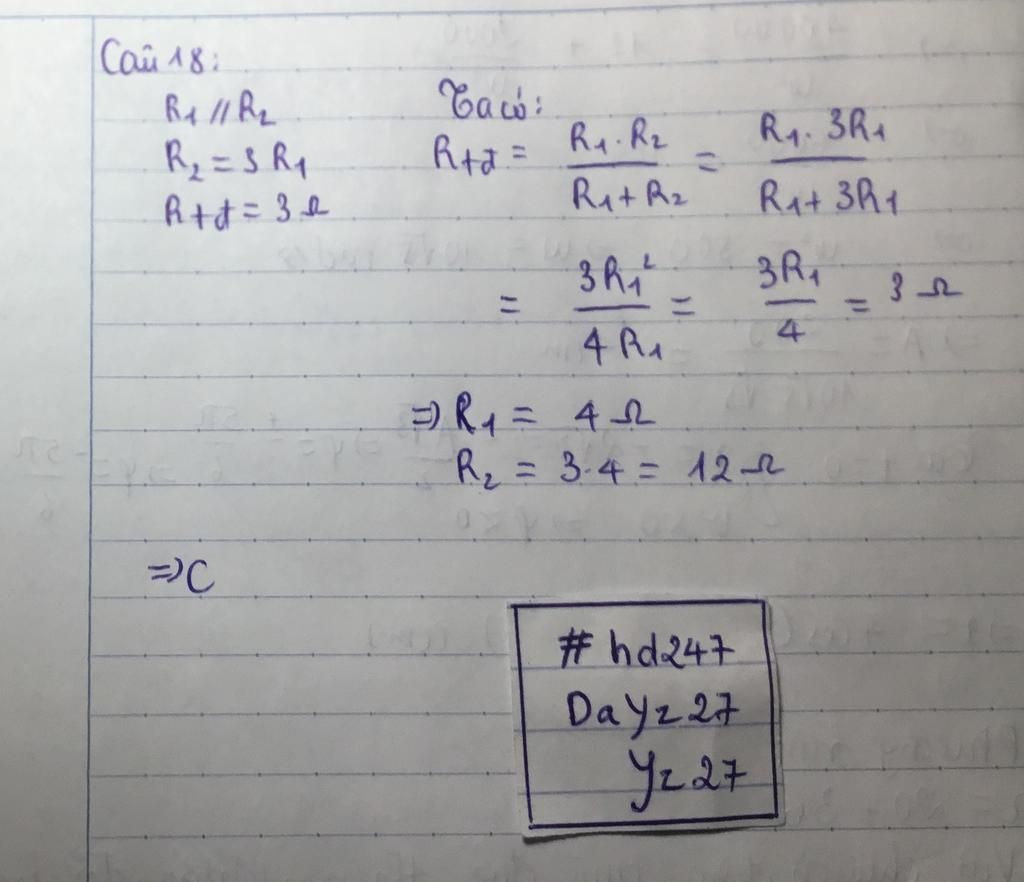 Câu 18:
R1 // R2
R2 = 3 R1
Rtđ = 3 Ω
Ta có:
Rtđ = R1 . R2 / R1 + R2 = R1 . 3R1 / R1 + 3R1
= 3R1² / 4 R1 = 3R1 / 4 = 3 Ω
=> R1 = 4 Ω
R2 = 3.4 = 12 Ω
=> C
# hd247
DaYz27
Yz27